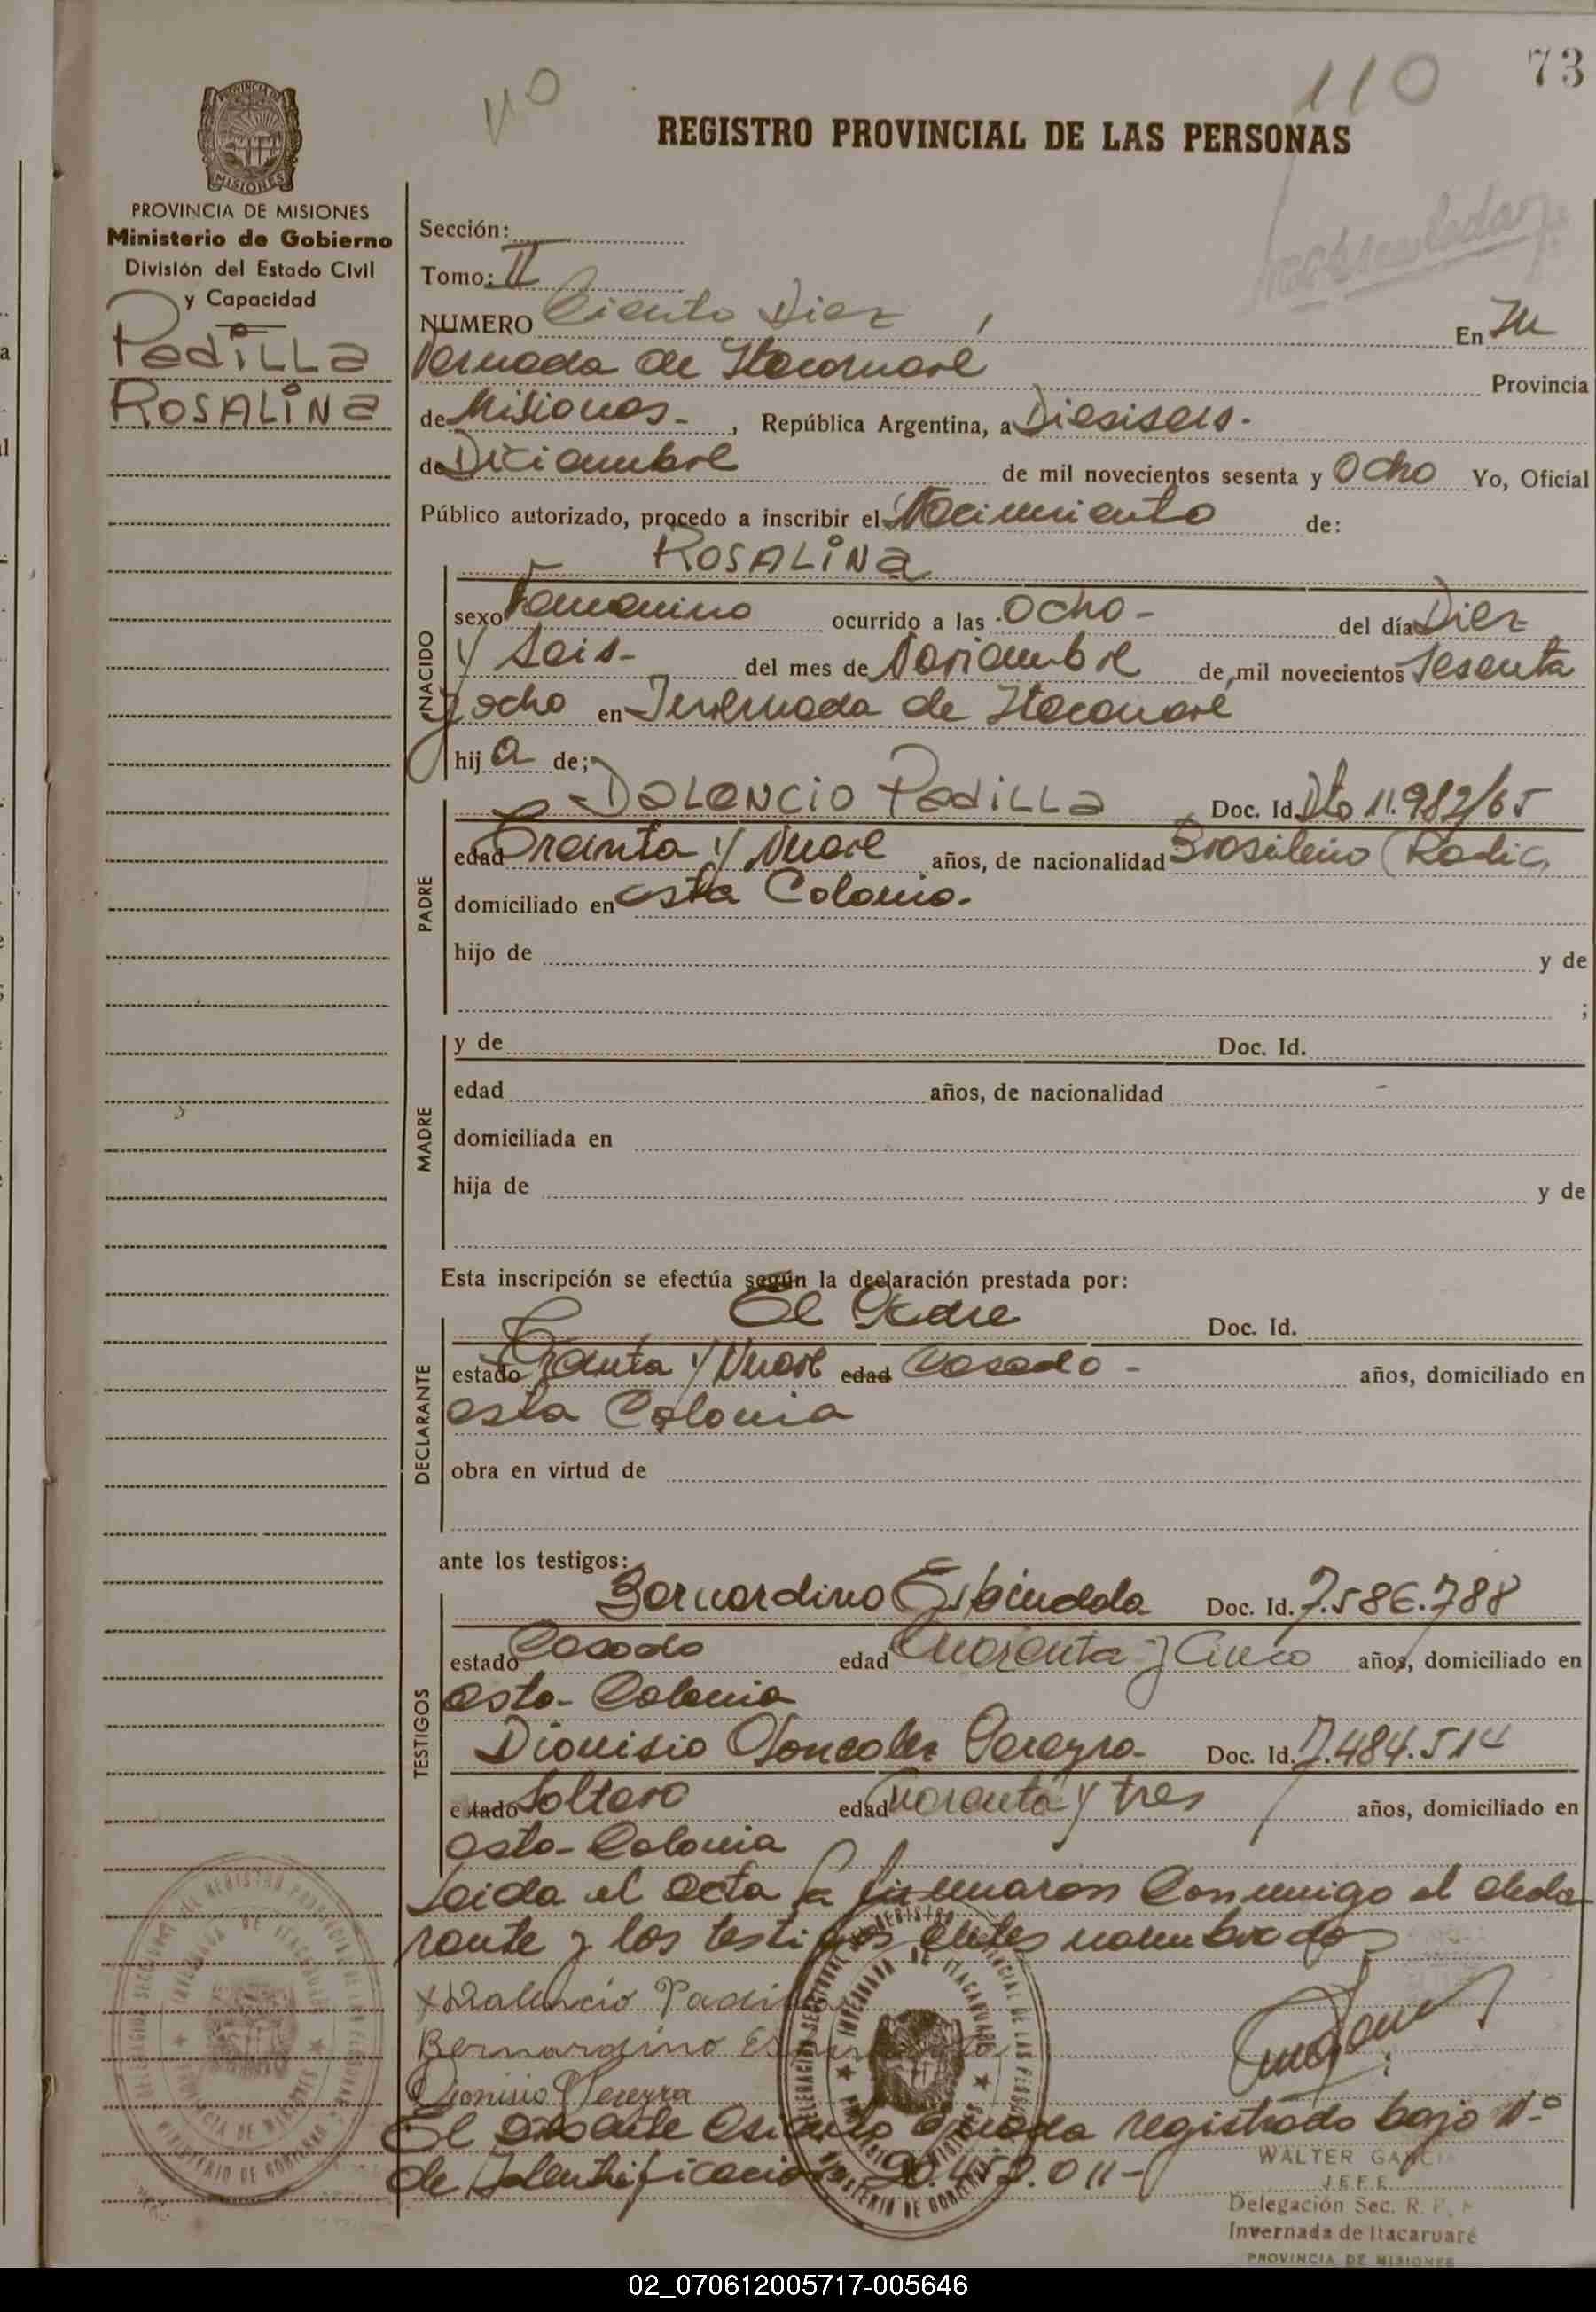 73
110
110
REGISTRO PROVINCIAL DE LAS PERSONAS
PROVINCIA DE MISIONES
Ministerio de Gobierno
División del Estado Civil
y Capacidad
Padilla
ROSALINA
Sección:
Tomo: II
NUMERO Ciento Diez En In
vernada de Itacaruaré Provincia
de Misiones - , República Argentina, a Diesiseis -
de Diciembre de mil novecientos sesenta y Ocho Yo, Oficial
Público autorizado, procedo a inscribir el Nacimiento de:
ROSALINA
NACIDO
sexo Femenino ocurrido a las Ocho - del día Diez
y Seis - del mes de Noviembre de mil novecientos Sesenta
y ocho en Invernada de Itacaruaré
hij a de;
PADRE
DALENCIO PADILLA Doc. Id. Dto 11.982/65
edad Treinta y Nueve años, de nacionalidad Brasileño (Radic
domiciliado en esta Colonia -
hijo de y de
;
MADRE
y de Doc. Id.
edad años, de nacionalidad
domiciliada en
hija de y de
Esta inscripción se efectúa según la declaración prestada por:
DECLARANTE
El Padre Doc. Id.
estado Treinta y Nueve edad Casado - años, domiciliado en
esta Colonia
obra en virtud de
ante los testigos:
TESTIGOS
Bernardino Espindola Doc. Id. 7.586.788
estado Casado edad Cuarenta y Cinco años, domiciliado en
esta - Colonia
Dionisio Gonzalez Pereyra - Doc. Id. 7.484.514
estado Soltero edad Cuarenta y tres años, domiciliado en
esta - Colonia
Leida el acta la firmaron Conmigo el decla
rante y los testigos antes nombrados
x Dalencio Padilla
Bernardino Espindola
Dionisio Pereyra
El presente asiento queda registrado bajo N.º
de Identificacion
WALTER GARCIA
JEFE
Delegación Sec. R. P. P.
Invernada de Itacaruaré
PROVINCIA DE MISIONES
02_070612005717-005646